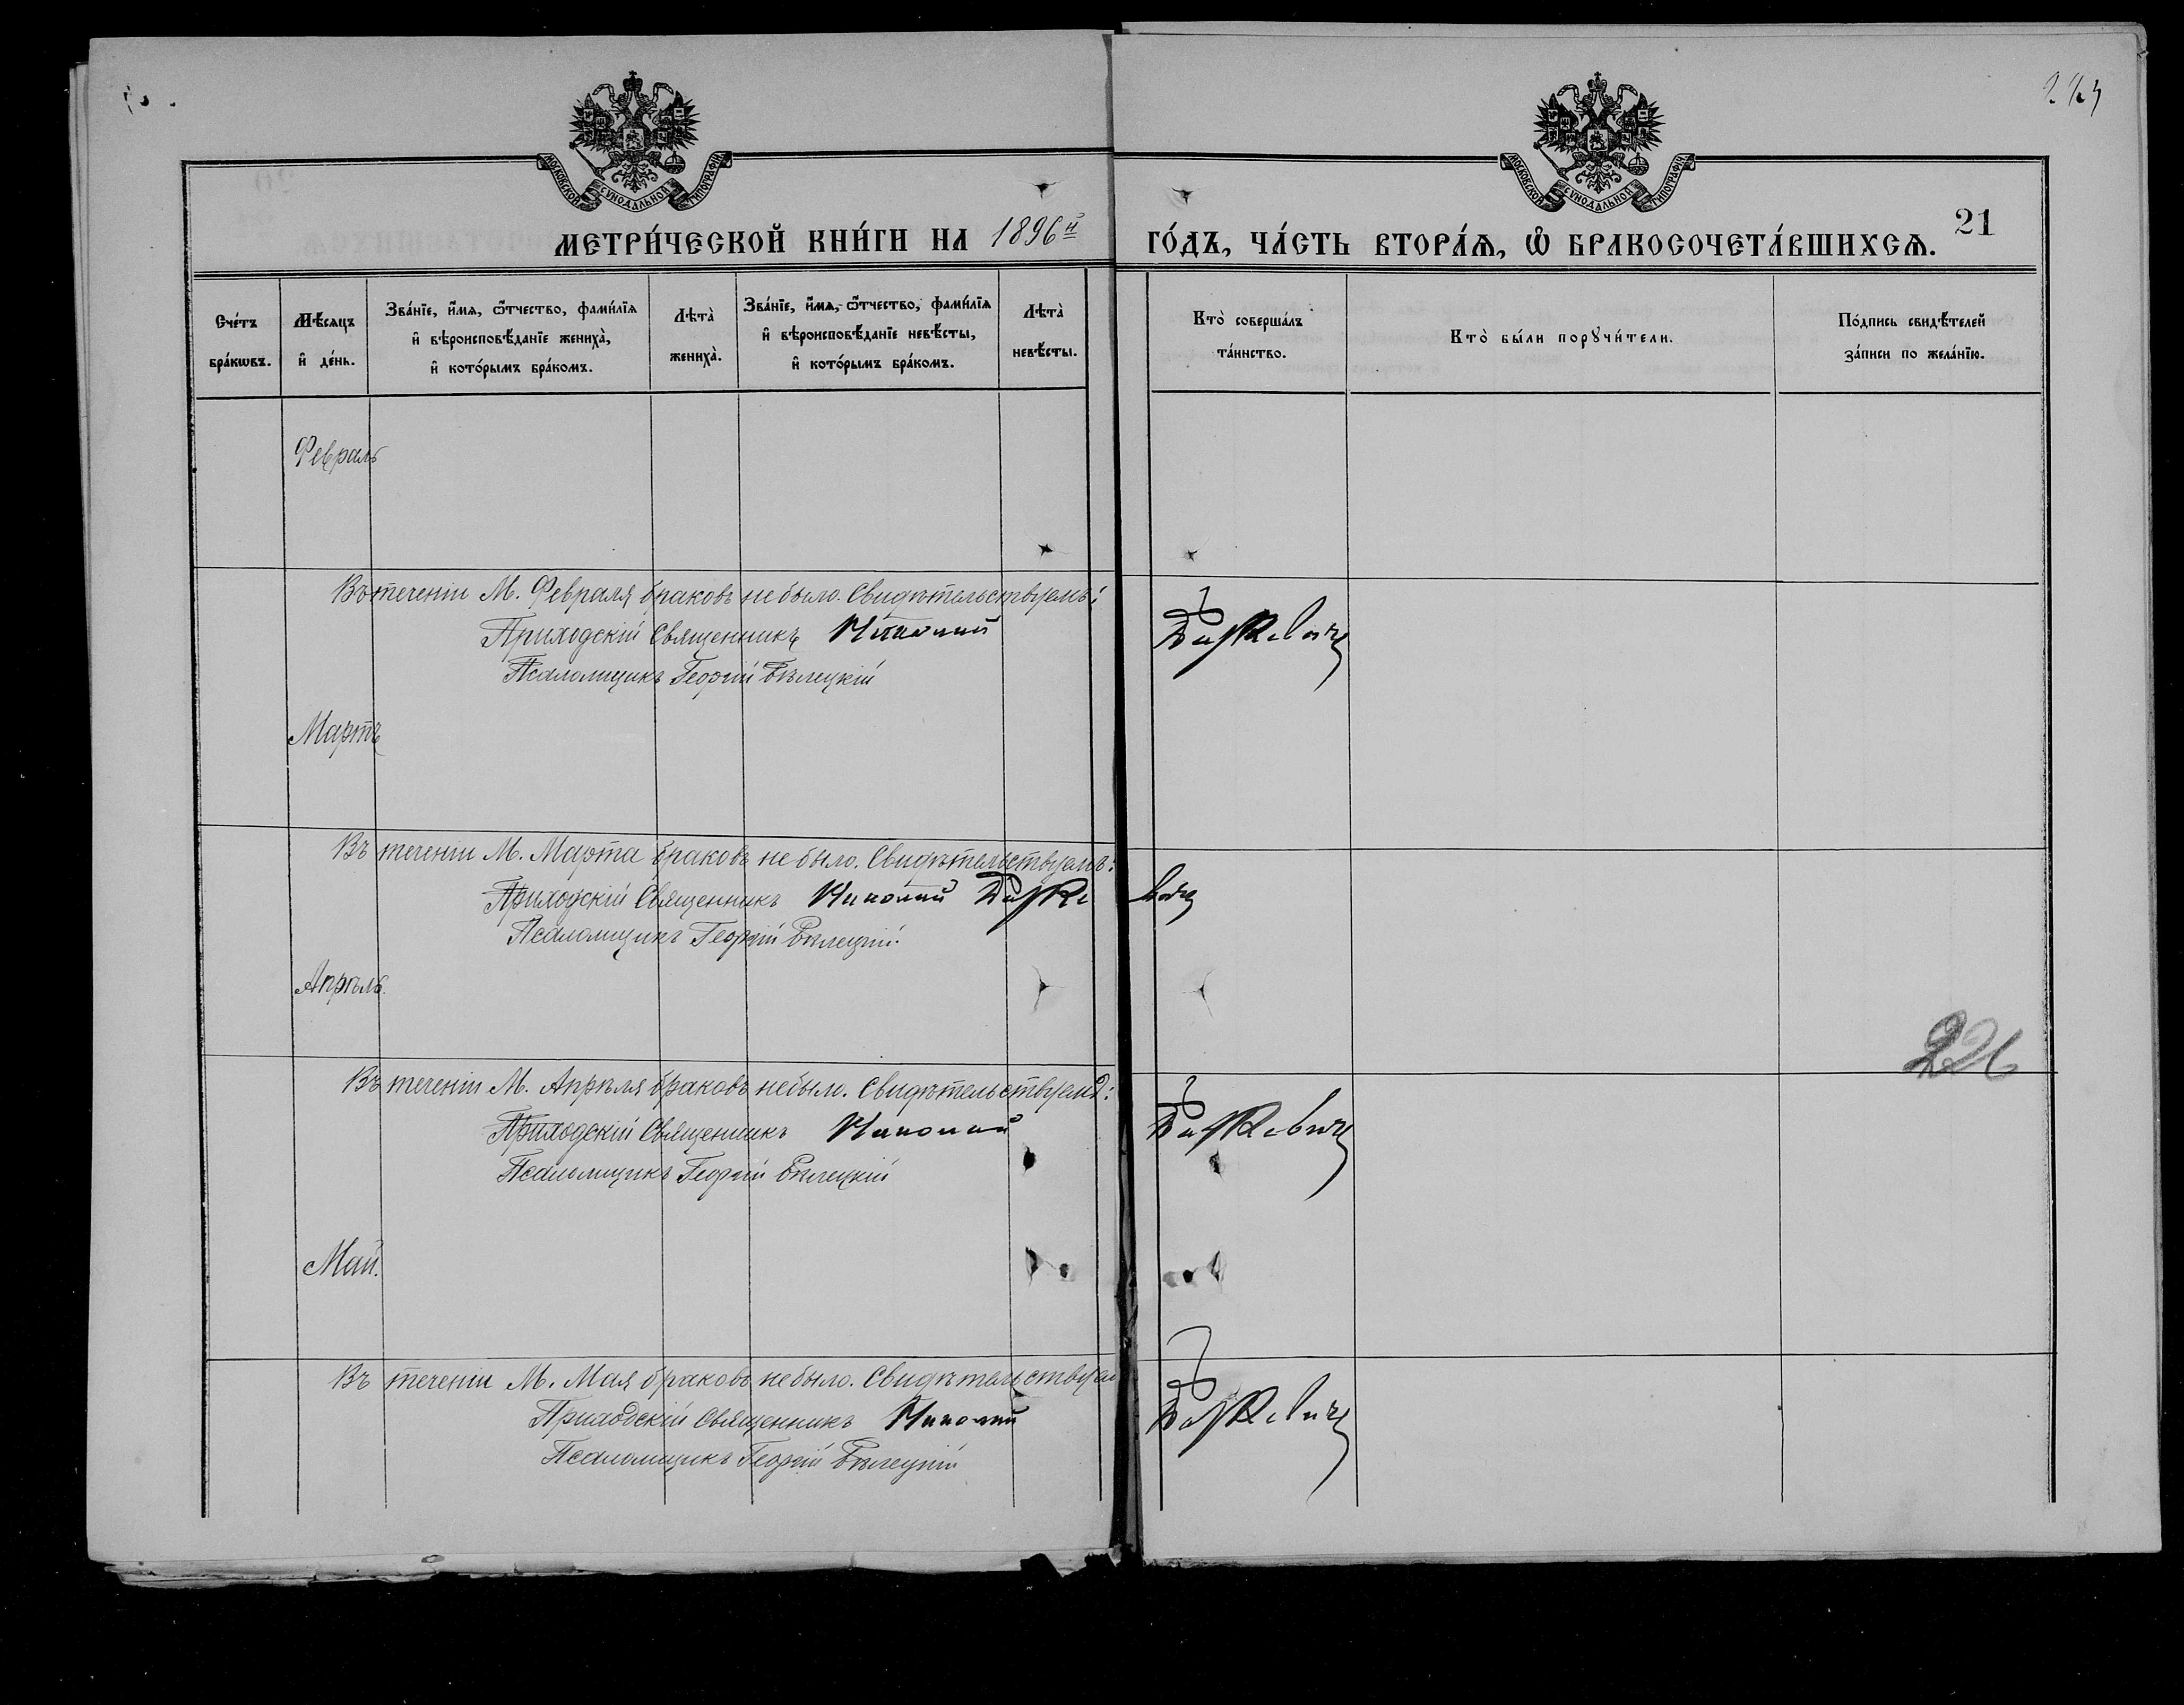 МОСКОВСКОЙ СѴНОДАЛЬНОЙ ТИПОГРАФІИ
МОСКОВСКОЙ СѴНОДАЛЬНОЙ ТИПОГРАФІИ
МЕТРИ́ЧЕСКОЙ КНИ́ГИ НА 1896й ГО́ДЪ, ЧА́СТЬ ВТОРА́Ѧ, Ѽ БРАКОСОЧЕТА́ВШИХСѦ.
21
Сче́тъ
бра́кѡвъ.
Мѣ́сѧцъ
и҆ де́нь.
Зва́нїе, и҆́мѧ, ѻ҆́тчество, фами́лїѧ
и҆ вѣроисповѣ́данїе жениха̀,
и҆ кото́рымъ бра́комъ.
Лѣта̀
жениха̀.
Зва́нїе, и҆́мѧ, ѻ҆́тчество, фами́лїѧ
и҆ вѣроисповѣ́данїе невѣ́сты,
и҆ кото́рымъ бра́комъ.
Лѣта̀
невѣ́сты.
Кто̀ соверша́лъ
та́инство.
Кто̀ бы́ли порꙋчи́тели.
По́дпись свидѣ́телей
за́писи по жела́нїю.
Февраль
Въ теченіи М. Февраля браковъ не было. Свидѣтельствуемъ:
Приходскій Священникъ Николай
Псаломщикъ Георгій Бѣлецкій
Мартъ
Въ теченіи М. Марта браковъ не было. Свидѣтельствуемъ:
Приходскій Священникъ Николай
Псаломщикъ Георгій Бѣлецкій.
Апрѣль.
226
Въ теченіи М. Апрѣля браковъ не было. Свидѣтельствуемъ:
Приходскій Священникъ Николай
Псаломщикъ Георгій Бѣлецкій
Май.
Въ теченіи М. Мая браковъ не было. Свидѣтельствуем
Приходскій Священникъ Николай
Псаломщикъ Георгій Бѣлецкій